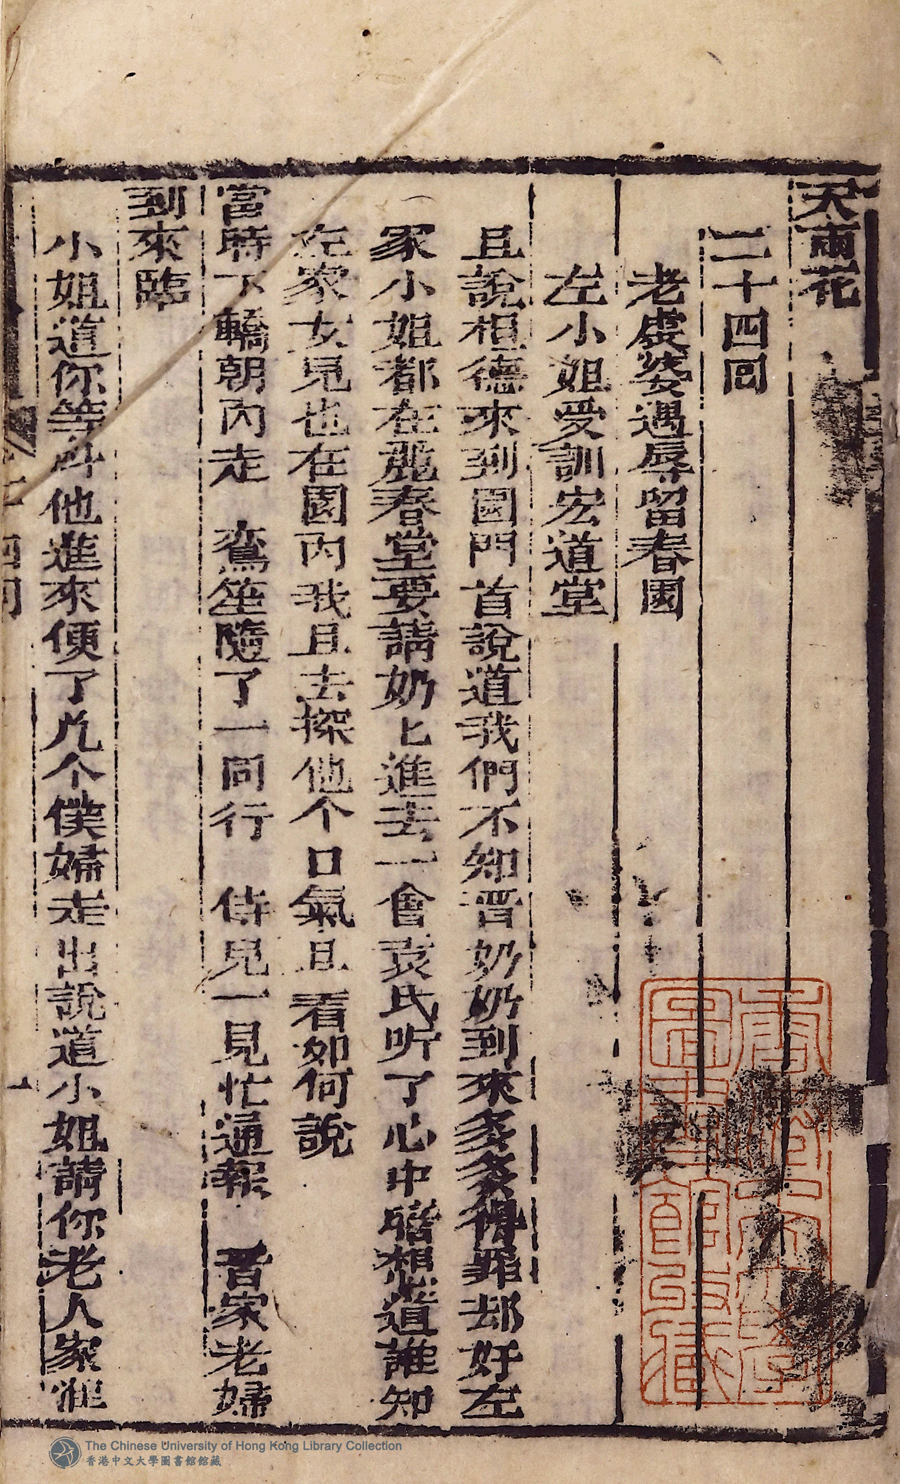 天雨花
二十四回
老虔婆遇辱留春園
左小姐受訓宏道堂
且說相德來到園門首說道我們不知晋奶奶到來多多得罪却好左
家小姐都在麗春堂要請奶匕進去一會袁氏听了心中暗想道誰知
左家女兒也在園内我且去探他个口氣且看如何說
當時下轎朝内走 鸞笙隨了一同行 侍兒一見忙通報 晋家老婦
到來臨
小姐道你等叫他進來便了几个僕婦走出說道小姐請你老人家進
The Chinese University of Hong Kong Library Collection
香港中文大學圖書館館藏